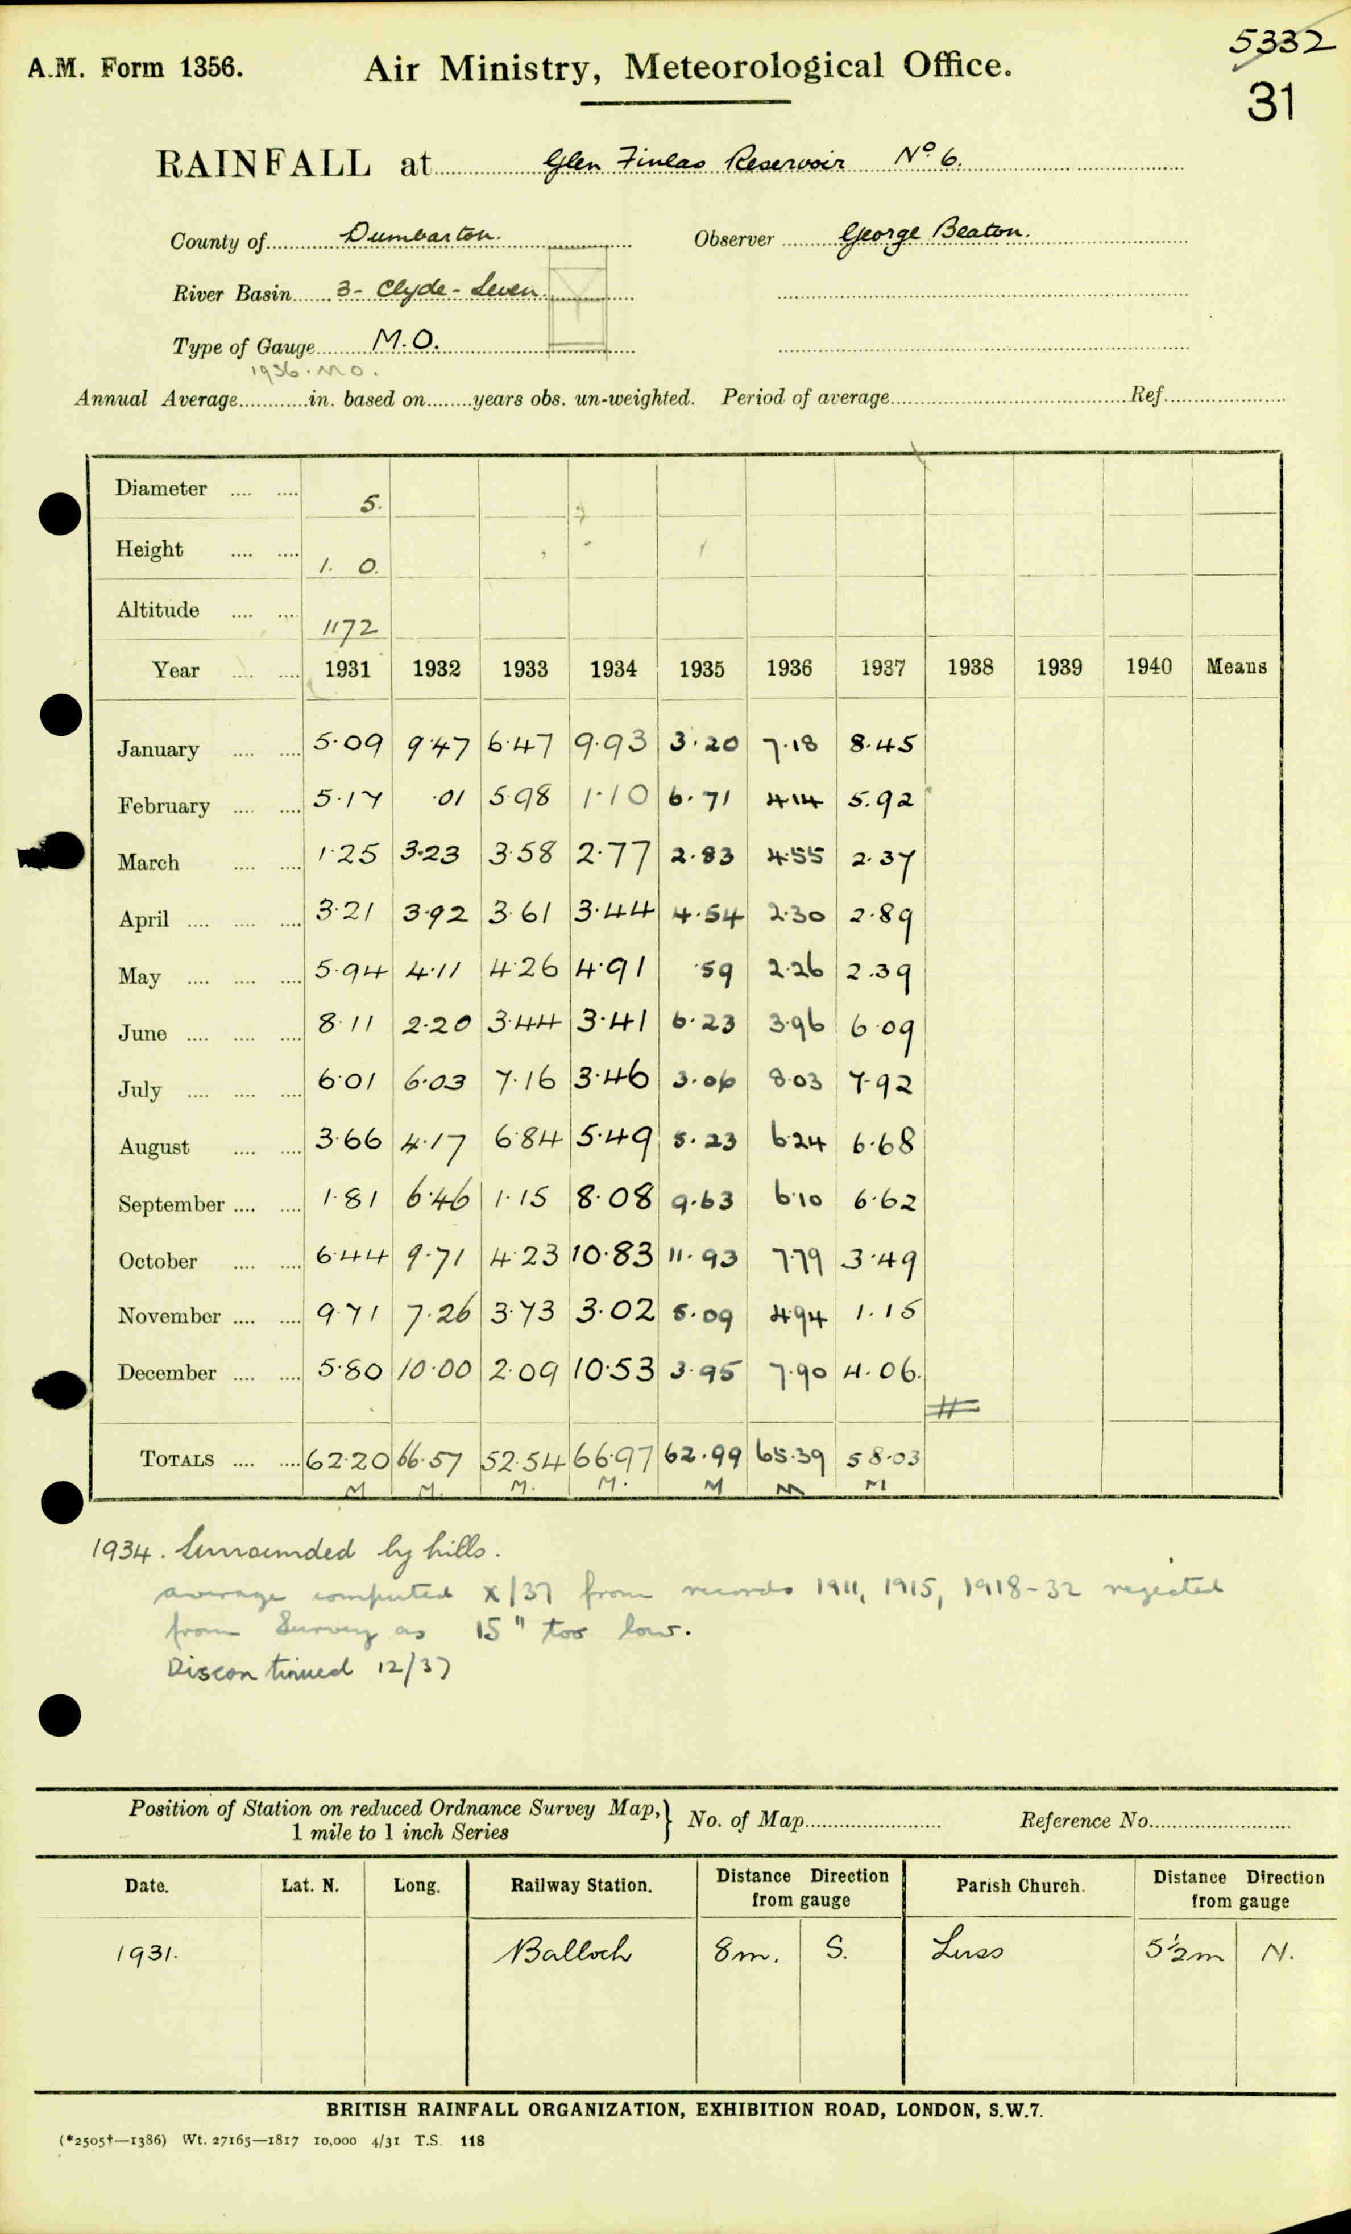 5332
A.M. Form 1356. Air Ministry, Meteorological Office.
31
RAINFALL at Glen Finlas Reservoir No 6.
County of Dumbarton. Observer George Beaton.
River Basin 3- Clyde - Leven
Type of Gauge M.O.
1936. M O.
Annual Average in. based on years obs. un-weighted. Period of average Ref.
Diameter 5.
Height 1. 0.
Altitude 1172
Year 1931 1932 1933 1934 1935 1936 1937 1938 1939 1940 Means
January 5.09 9.47 6.47 9.93 3.20 7.18 8.45
February 5.17 .01 5.98 1.10 6.71 4.14 5.92
March 1.25 3.23 3.58 2.77 2.83 4.55 2.37
April 3.21 3.92 3.61 3.44 4.54 2.30 2.89
May 5.94 4.11 4.26 4.91 .59 2.26 2.39
June 8.11 2.20 3.44 3.41 6.23 3.96 6.09
July 6.01 6.03 7.16 3.46 3.06 8.03 7.92
August 3.66 4.17 6.84 5.49 5.23 6.24 6.68
September 1.81 6.46 1.15 8.08 9.63 6.10 6.62
October 6.44 9.71 4.23 10.83 11.93 7.79 3.49
November 9.71 7.26 3.73 3.02 5.09 4.94 1.15
December 5.80 10.00 2.09 10.53 3.95 7.90 4.06.
TOTALS 62.20 66.57 52.54 66.97 62.99 65.39 58.03
M M. M. M. M M M
1934. Surrounded by hills.
average computed X/37 from records 1911, 1915, 1918-32 rejected
from Survey as 15" too low.
Discontinued 12/37
Position of Station on reduced Ordnance Survey Map, } No. of Map Reference No.
1 mile to 1 inch Series
Date. Lat. N. Long. Railway Station. Distance Direction from gauge Parish Church. Distance Direction from gauge
1931. Balloch 8m. S. Luss 5½m N.
BRITISH RAINFALL ORGANIZATION, EXHIBITION ROAD, LONDON, S.W.7.
(*2505†—1386) Wt. 27165—1817 10,000 4/31 T.S. 118